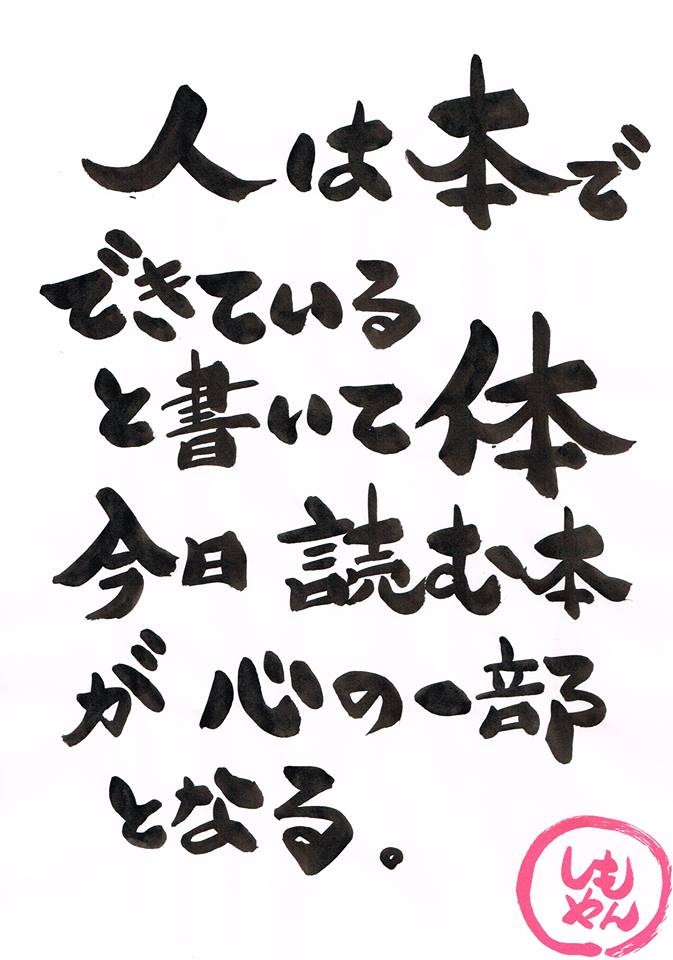 人は本で
できている
と書いて体
今日読む本
が心の一部
となる。
しも
やん